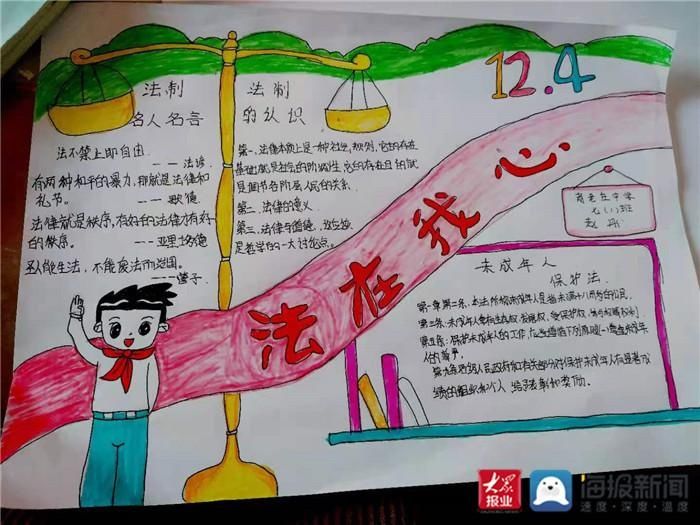 12.4
法制
名人名言
法不禁止即自由.
---法谚
有两种和平的暴力,那就是法律和
礼节。
---歌德
法律就是秩序,有好的法律才有好
的秩序。
---亚里士多德
圣人能生法,不能废法而治国。
---管子
法制
的认识
第一、法律本质上是一种社会规则,它的存在
基础就是社会的阶级性,它的存在目的就
是调节各阶层人民的关系.
第二、法律的意义
第三、法律与道德,
是哲学的一大讨论点。
法在我心
中学
七(1)班
未成年人
保护法.
第一章第二条、本法所称未成年人是指未满十八周岁的公民,
第三条、未成年人享有生存权、发展权、受保护权、参与权等权利
第五条:保护未成年人的工作,应当遵循下列原则:(一)尊重未成年
人的尊严,
人民政府和有关部门对保护未成年人有显著成
绩的组织和个人,给予表彰和奖励。
大众
报业
海报新闻
速度·深度·温度